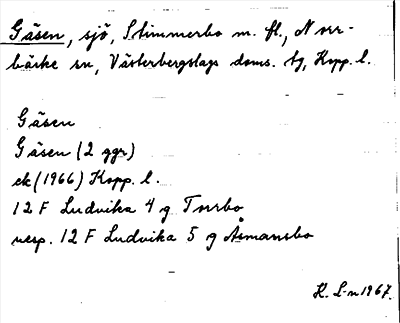 Gåsen, sjö, Stimmerbo m. fl., Norr-
bärke sn, Västerbergslags doms. tg, Kopp. l.
Gåsen
Gåsen (2 ggr)
ek (1966) Kopp. l.
12 F Ludvika 4 g Torrbo
resp. 12 F Ludvika 5 g Åsmansbo
K. L-n 1967.